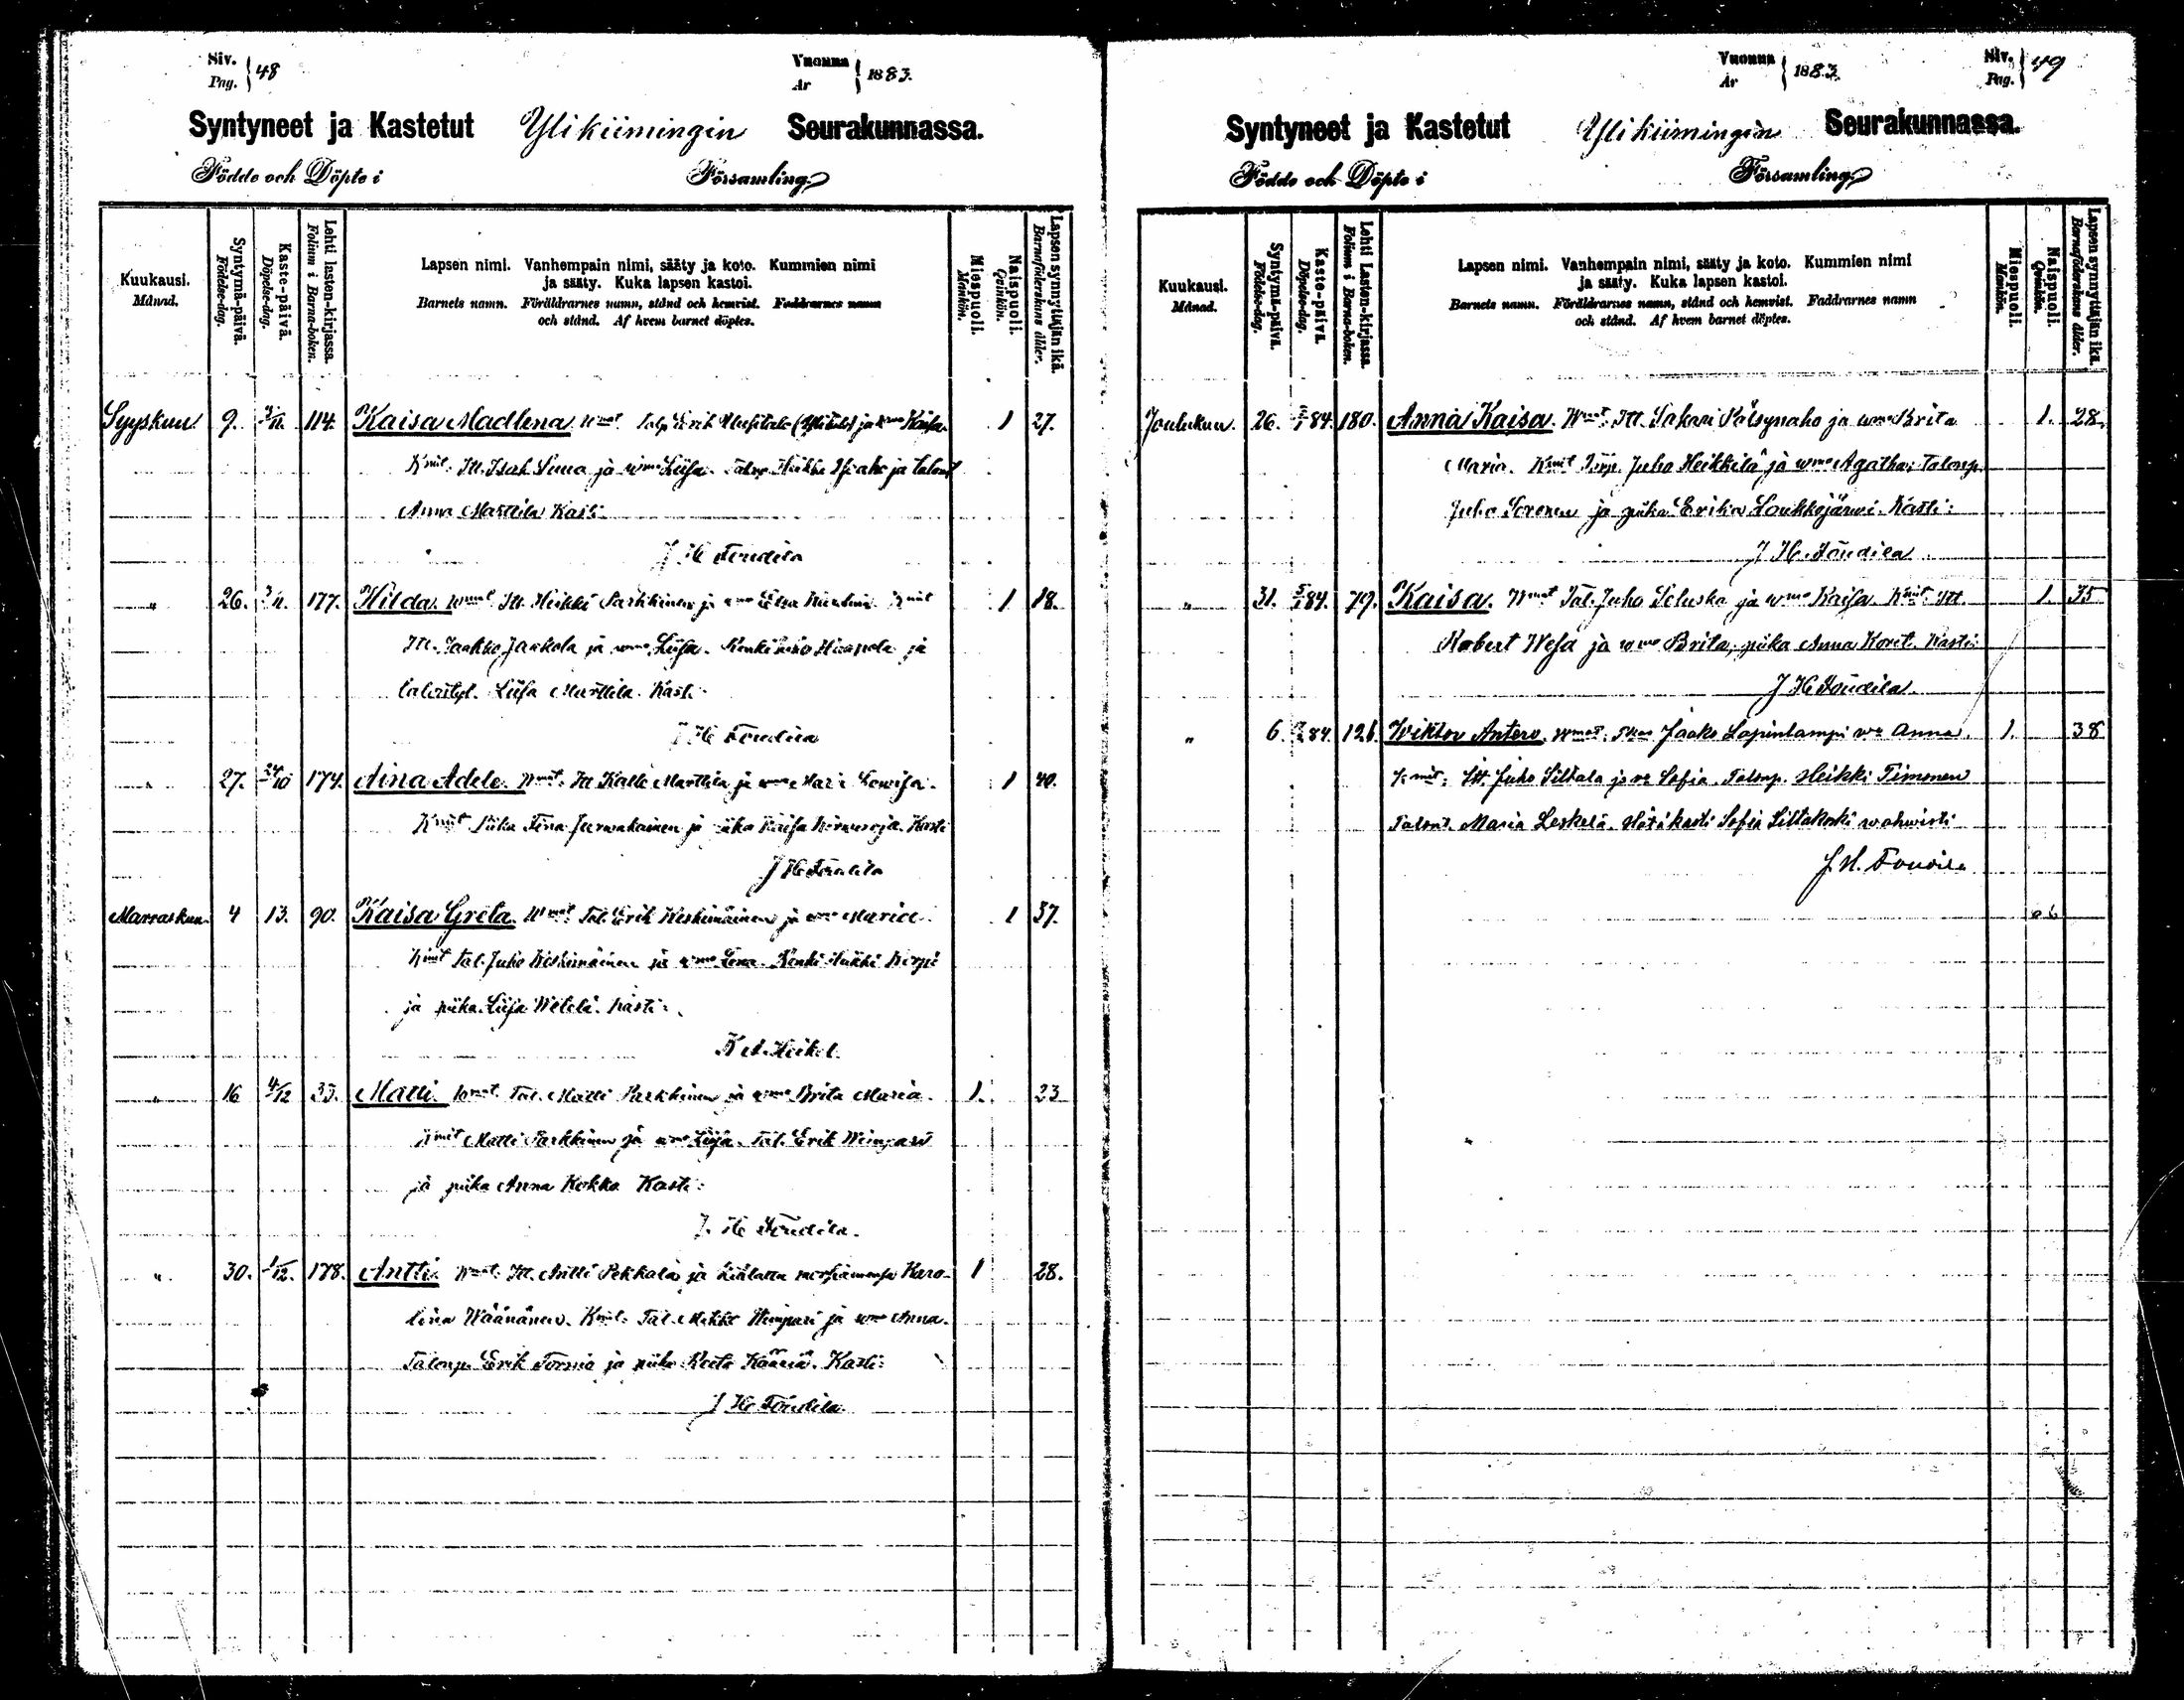 Siv. Pag. } 48
Vuonna År } 1883.
Syntyneet ja Kastetut Ylikiimingin Seurakunnassa.
Födde och Döpte i Församling
Kuukausi. Månad.
Syntymä-päivä. Födelse-dag.
Kaste-päivä. Döpelse-dag.
Lehti lasten-kirjassa. Folium i Barna-boken.
Lapsen nimi. Vanhempain nimi, sääty ja koto. Kummien nimi
ja sääty. Kuka lapsen kastoi.
Barnets namn. Föräldrarnes namn, stånd och hemvist. Faddrarnes namn
och stånd. Af hvem barnet döptes.
Miespuoli. Mankön.
Naispuoli. Qvinkön.
Lapsen synnyttäjän ikä. Barnaföderskans ålder.
Syyskuu 9. 114. Kaisa Madlena. Wmat Talp. Erik ja wmo Kaisa. 1 27.
Kmit Itt. Isak ja wmo Liisa. Heikki ja
Anna Marttila Kasti:
J H Toudila
" 26. 177. Hilda. Wmat Itt. Heikki Parkkinen ja wmo Kmit 1 18.
Itt. Jaakko Jaakola ja wmo Liisa. Renki ja
Liisa Marttila. Kasti:
J H Toudila
" 27. 24/10 174. Aina Adele. Wmat. Itt Kalle Marttila ja wmo Maria Lowisa. 1 40.
Kmit Piika ja piika Kaisa Kasti
J H Toudila
Marraskuu 4 13. 90. Kaisa Greta. Wmat Tal. Erik Keskimäinen ja wmo Maria 1 37.
Kmit Tal. Juho Keskimäinen ja wmo Lena. Renki Heikki
ja piika Liisa Kasti:
K A Heikel.
" 16 4/12 33. Matti. Wmat Tal. Matti Parkkinen ja wmo Brita Maria. 1. 23
Kmit Matti Parkkinen ja wmo Liisa. Tal. Erik Wimpari
ja piika Anna Kokko Kasti:
J. H Toudila.
" 30. 1/12. 178. Antti. Wmat. Itt. Antti Pekkala ja kihlattu morsiamensa Karo- 1 28.
lina Wäänänen. Kmit. Tal. Mikko Wimpari ja wmo Anna.
Talonp. Erik ja piika Kasti:
J H Toudila
Vuonna År } 1883.
Siv. Pag. } 49
Syntyneet ja Kastetut Ylikiimingin Seurakunnassa.
Födde och Döpte i Församling
Kuukausi. Månad.
Syntymä-päivä. Födelse-dag.
Kaste-päivä. Döpelse-dag.
Lehti Lasten-kirjassa. Folium i Barna-boken.
Lapsen nimi. Vanhempain nimi, sääty ja koto. Kummien nimi
ja sääty. Kuka lapsen kastoi.
Barnets namn. Föräldrarnes namn, stånd och hemvist. Faddrarnes namn
och stånd. Af hvem barnet döptes.
Miespuoli. Mankön.
Naispuoli. Qvinkön.
Lapsen synnyttäjän ikä. Barnaföderskans ålder.
Joulukuu. 26. 84. 180. Anna Kaisa. Wmat. Itt. Sakari Pälsynaho ja wmo Brita 1. 28.
Maria. Kmit Juho Heikkilä ja wmo Agatha; Talonp.
Juho Soronen ja piika Erika Loukkojärwi. Kasti:
J H. Toudila
" 31. 84. 79. Kaisa. Wmat Tal. Juho ja wmo Kaisa. Kmit. Itt. 1. 35
Robert Wesa ja wmo Brita, piika Anna Kasti:
J H Toudila.
" 6. 84. 126. Wiktor Antero. Wmat. Jaako Lapinlampi wo Anna. 1. 38
Kmit: Itt. Juho Siltala ja wo Sofia. Talonp. Heikki Timonen
Talont. Maria Leskelä. Hätäkasti Sofia Siltakoski wahwisti
J. H. Toudila